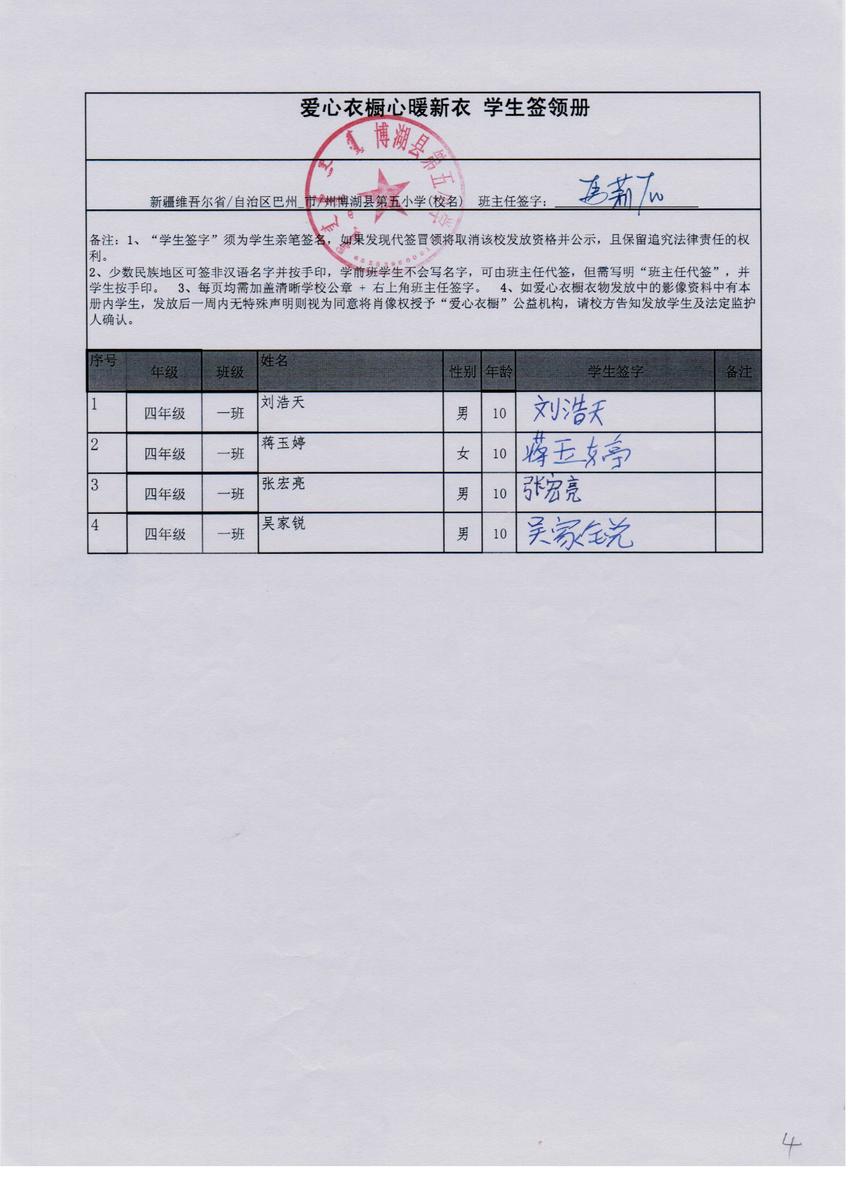 爱心衣橱心暖新衣 学生签领册
博湖县第五小学
新疆维吾尔省/自治区巴州_市/州博湖县第五小学(校名) 班主任签字:
备注:1、“学生签字”须为学生亲笔签名,如果发现代签冒领将取消该校发放资格并公示,且保留追究法律责任的权
利。
2、少数民族地区可签非汉语名字并按手印,学前班学生不会写名字,可由班主任代签,但需写明“班主任代签”,并
学生按手印。 3、每页均需加盖清晰学校公章 + 右上角班主任签字。 4、如爱心衣橱衣物发放中的影像资料中有本
册内学生,发放后一周内无特殊声明则视为同意将肖像权授予“爱心衣橱”公益机构,请校方告知发放学生及法定监护
人确认。
序号 年级 班级 姓名 性别 年龄 学生签字 备注
1 四年级 一班 刘浩天 男 10 刘浩天
2 四年级 一班 蒋玉婷 女 10 蒋玉婷
3 四年级 一班 张宏亮 男 10 张宏亮
4 四年级 一班 吴家锐 男 10 吴家锐
4